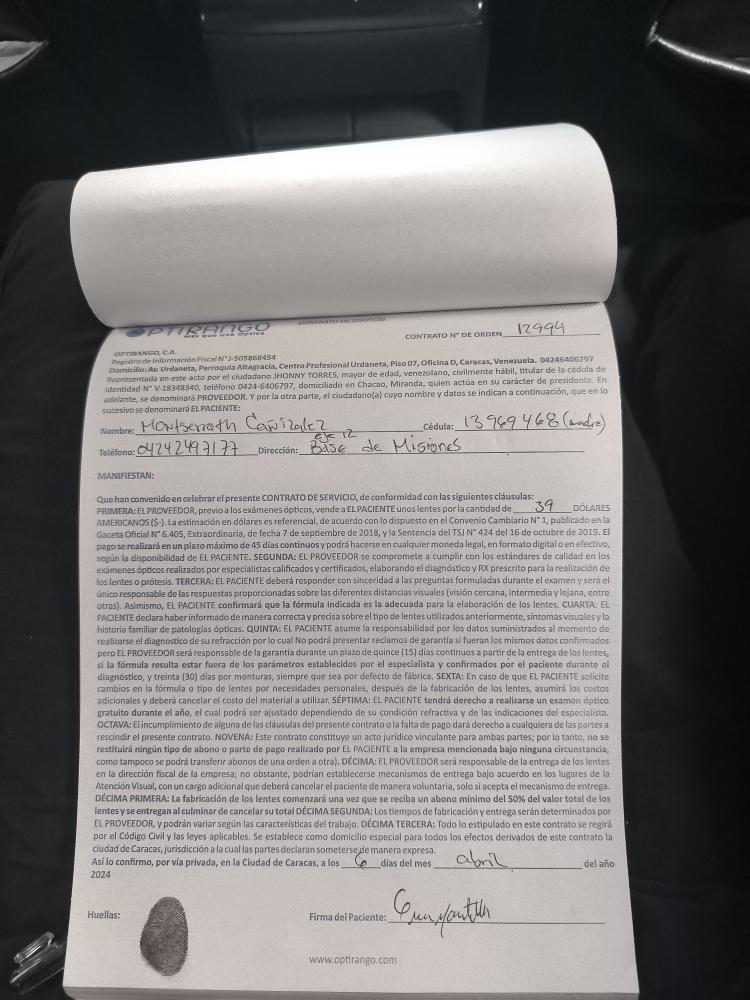 OPTIRANGO
Más que una Óptica
CONTRATO DE SERVICIO
CONTRATO N° DE ORDEN 12994
OPTIRANGO, C.A.
Registro de Información Fiscal N°J-505868454
Domicilio: Av. Urdaneta, Parroquia Altagracia, Centro Profesional Urdaneta, Piso 07, Oficina D, Caracas, Venezuela. 04246406797
Representada en este acto por el ciudadano JHONNY TORRES, mayor de edad, venezolano, civilmente hábil, titular de la cédula de
Identidad N° V-18348340, teléfono 0424-6406797, domiciliado en Chacao, Miranda, quien actúa en su carácter de presidente. En
adelante, se denominará PROVEEDOR. Y por la otra parte, el ciudadano(a) cuyo nombre y datos se indican a continuación, que en lo
sucesivo se denominará EL PACIENTE:
Nombre: Montserrath Cañizalez Cédula: 13969468 (madre)
eje 12
Teléfono: 04242497177 Dirección: Base de Misiones
MANIFIESTAN:
Que han convenido en celebrar el presente CONTRATO DE SERVICIO, de conformidad con las siguientes cláusulas:
PRIMERA: EL PROVEEDOR, previo a los exámenes ópticos, vende a EL PACIENTE unos lentes por la cantidad de 39 DÓLARES
AMERICANOS ($-). La estimación en dólares es referencial, de acuerdo con lo dispuesto en el Convenio Cambiario N° 1, publicado en la
Gaceta Oficial N° 6.405, Extraordinaria, de fecha 7 de septiembre de 2018, y la Sentencia del TSJ N° 424 del 16 de octubre de 2019. El
pago se realizará en un plazo máximo de 45 días continuos y podrá hacerse en cualquier moneda legal, en formato digital o en efectivo,
según la disponibilidad de EL PACIENTE. SEGUNDA: EL PROVEEDOR se compromete a cumplir con los estándares de calidad en los
exámenes ópticos realizados por especialistas calificados y certificados, elaborando el diagnóstico y RX prescrito para la realización de
los lentes o prótesis. TERCERA: EL PACIENTE deberá responder con sinceridad a las preguntas formuladas durante el examen y será el
único responsable de las respuestas proporcionadas sobre las diferentes distancias visuales (visión cercana, intermedia y lejana, entre
otras). Asimismo, EL PACIENTE confirmará que la fórmula indicada es la adecuada para la elaboración de los lentes. CUARTA: EL
PACIENTE declara haber informado de manera correcta y precisa sobre el tipo de lentes utilizados anteriormente, síntomas visuales y la
historia familiar de patologías ópticas. QUINTA: EL PACIENTE asume la responsabilidad por los datos suministrados al momento de
realizarse el diagnostico de su refracción por lo cual No podrá presentar reclamos de garantía si fueran los mismos datos confirmados
pero EL PROVEEDOR será responsable de la garantía durante un plazo de quince (15) días continuos a partir de la entrega de los lentes,
si la fórmula resulta estar fuera de los parámetros establecidos por el especialista y confirmados por el paciente durante el
diagnóstico, y treinta (30) días por monturas, siempre que sea por defecto de fábrica. SEXTA: En caso de que EL PACIENTE solicite
cambios en la fórmula o tipo de lentes por necesidades personales, después de la fabricación de los lentes, asumirá los costos
adicionales y deberá cancelar el costo del material a utilizar. SÉPTIMA: EL PACIENTE tendrá derecho a realizarse un examen óptico
gratuito durante el año, el cual podrá ser ajustado dependiendo de su condición refractiva y de las indicaciones del especialista.
OCTAVA: El incumplimiento de alguna de las cláusulas del presente contrato o la falta de pago dará derecho a cualquiera de las partes a
rescindir el presente contrato. NOVENA: Este contrato constituye un acto jurídico vinculante para ambas partes; por lo tanto, no se
restituirá ningún tipo de abono o parte de pago realizado por EL PACIENTE a la empresa mencionada bajo ninguna circunstancia,
como tampoco se podrá transferir abonos de una orden a otra). DÉCIMA: EL PROVEEDOR será responsable de la entrega de los lentes
en la dirección fiscal de la empresa; no obstante, podrían establecerse mecanismos de entrega bajo acuerdo en los lugares de la
Atención Visual, con un cargo adicional que deberá cancelar el paciente de manera voluntaria, solo si acepta el mecanismo de entrega.
DÉCIMA PRIMERA: La fabricación de los lentes comenzará una vez que se reciba un abono mínimo del 50% del valor total de los
lentes y se entregan al culminar de cancelar su total DÉCIMA SEGUNDA: Los tiempos de fabricación y entrega serán determinados por
EL PROVEEDOR, y podrán variar según las características del trabajo. DÉCIMA TERCERA: Todo lo estipulado en este contrato se regirá
por el Código Civil y las leyes aplicables. Se establece como domicilio especial para todos los efectos derivados de este contrato la
ciudad de Caracas, jurisdicción a la cual las partes declaran someterse de manera expresa.
Así lo confirmo, por vía privada, en la Ciudad de Caracas, a los 6 días del mes abril del año
2024
Huellas:
Firma del Paciente:
www.optirango.com